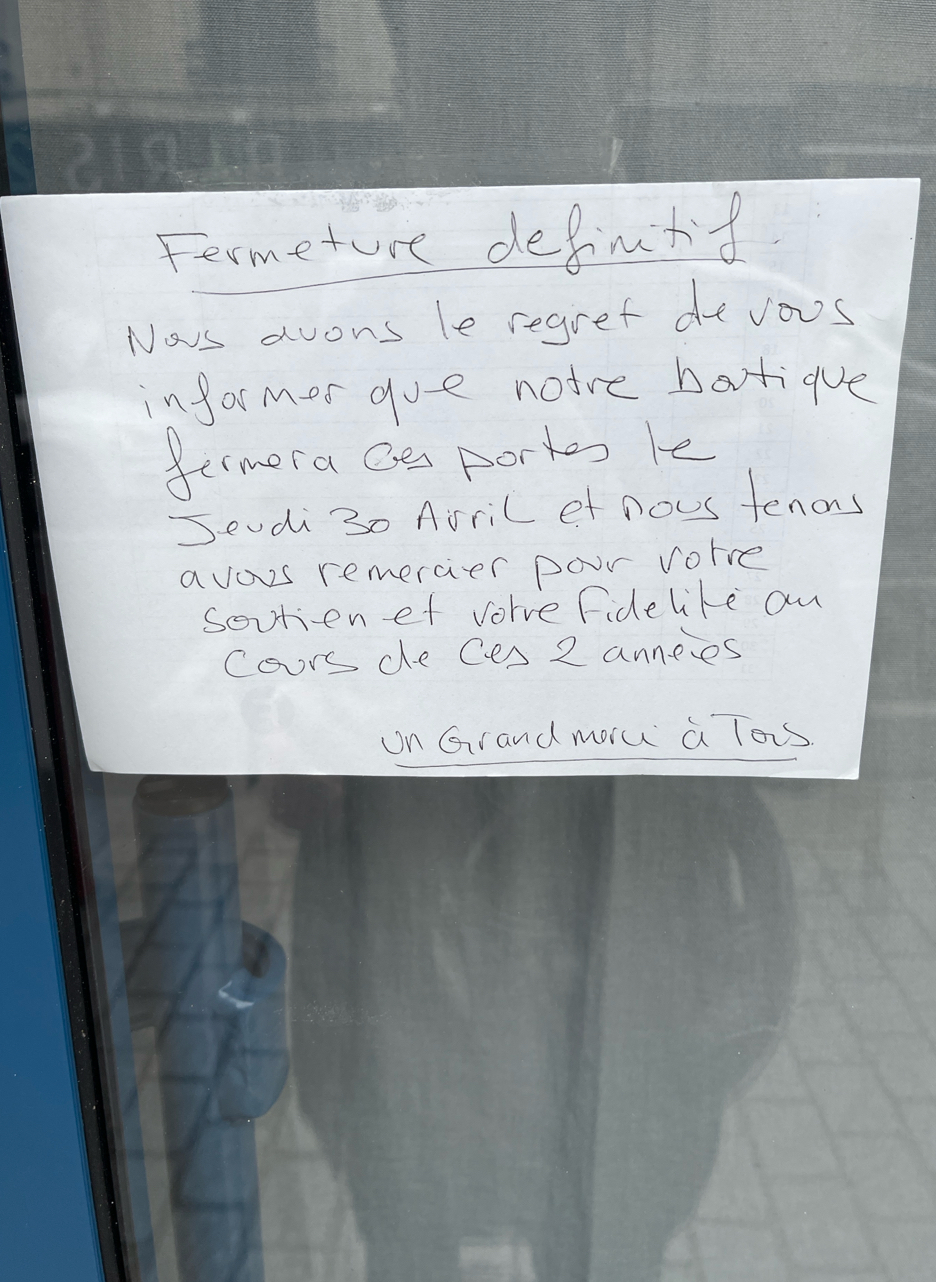 Fermeture definitif
Nous avons le regret de vous
informer que notre boutique
fermera ces portes le
Jeudi 30 Avril et nous tenons
avous remercier pour votre
soutien et votre fidelité au
cours de ces 2 annèes
un Grand merci à Tous.